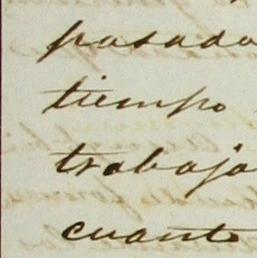 pasado
tiempo
trabaja
cuanto